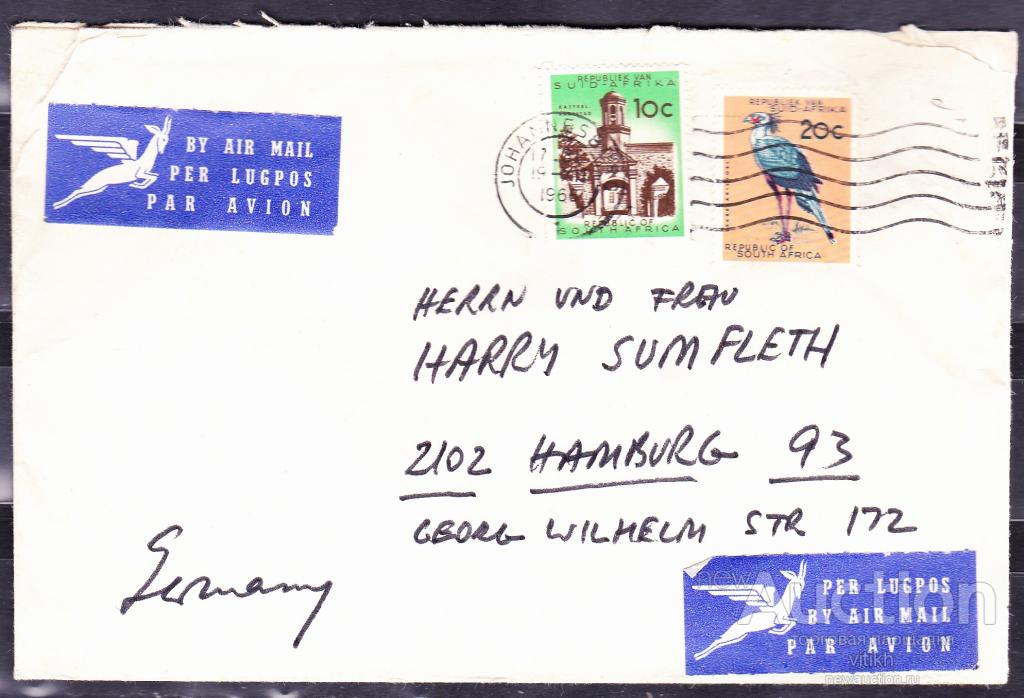 BY AIR MAIL
PER LUGPOS
PAR AVION
REPUBLIEK VAN
SUID-AFRIKA
10c
REPUBLIC OF
SOUTH AFRICA
REPUBLIEK VAN
SUID-AFRIKA
20c
REPUBLIC OF
SOUTH AFRICA
HERRN UND FRAU
HARRY SUMFLETH
2102 HAMBURG 93
GEORG WILHELM STR 172
Germany
PER LUGPOS
BY AIR MAIL
PAR AVION
newAuction
торговая площадка
vitikh
newauction.ru